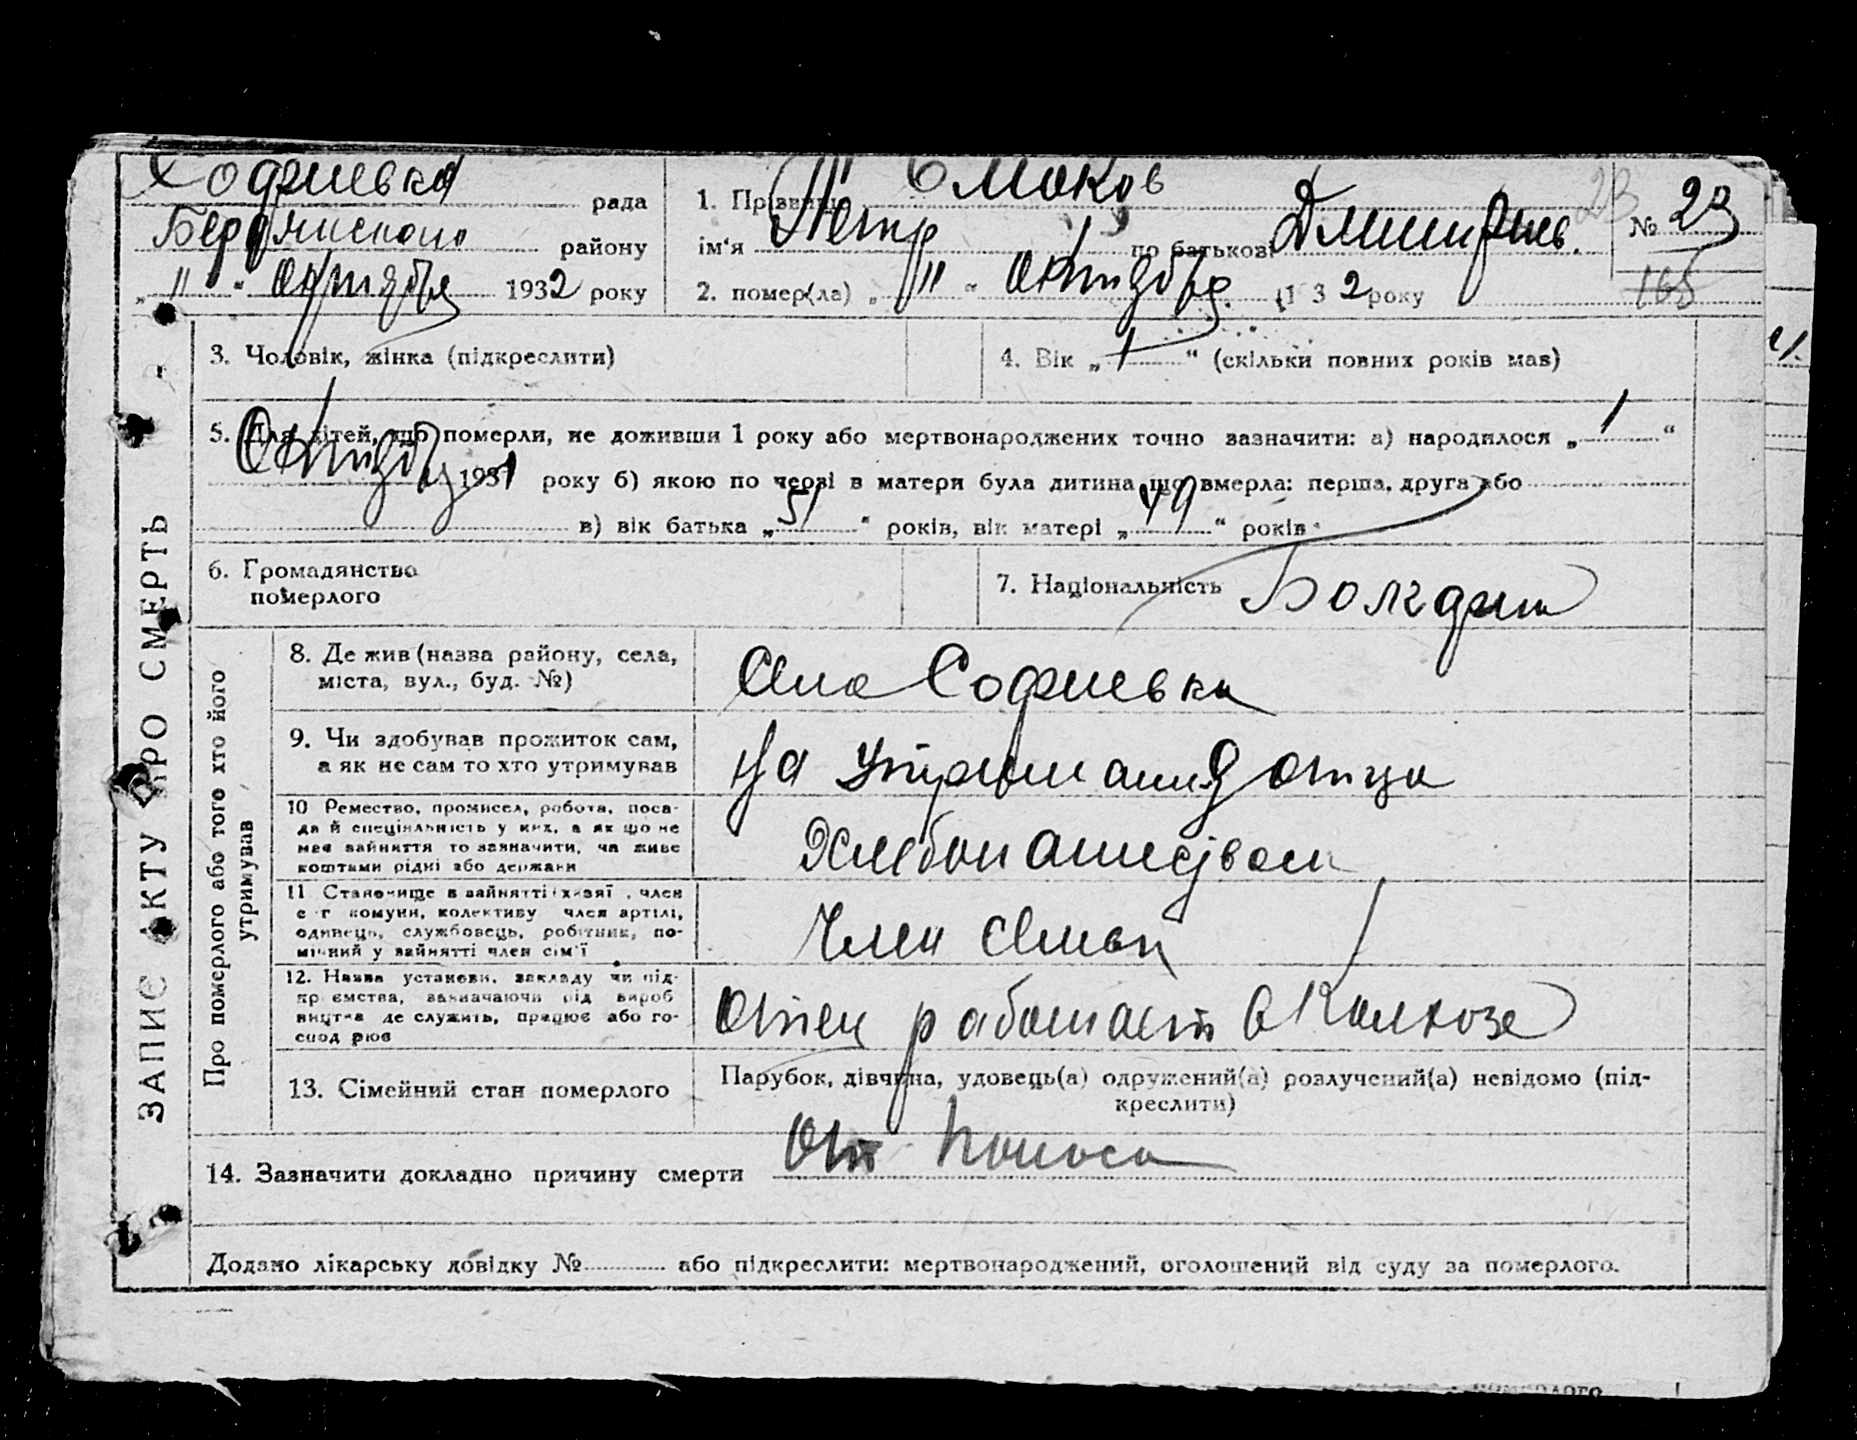 Софиевка рада
Бердянского району
„ 11 “ октября 1932 року
1. Прізвище Смоков
ім'я Петр по батькові Дмитриев.
2. помер(ла) „ 11 “ октября 1932 року
№ 23
23
165
ЗАПИС АКТУ ПРО СМЕРТЬ
3. Чоловік, жінка (підкреслити)
4. Вік „ 1 “ (скільки повних років мав)
5. Для дітей, що померли, не доживши 1 року або мертвонароджених точно зазначити: а) народилося „ 1 “
Октября 1931 року б) якою по черзі в матери була дитина що вмерла: перша, друга або
в) вік батька „ 51 “ років, вік матері „ 49 “ років
6. Громадянство
померлого
7. Національність Болгарин
Про померлого або того хто його
утримував
8. Де жив (назва району, села,
міста, вул., буд. №)
Село Софиевка
9. Чи здобував прожиток сам,
а як не сам то хто утримував
На утримании отца
10 Ремество, промисел, робота, поса-
да й спеціяльність у них, а як що не
мав зайняття то зазначити, чи живе
коштами рідні або держави
Хлебопашеством
11 Становище в зайнятті член
комуни, колективу член артілі,
одинець, службовець, робітник, по-
мічний у зайнятті член сім'ї
Член Семьи
12. Назва установи, закладу чи під-
приємства, зазначаючи рід вироб
ництва де служить, працює або го-
сподрює
Отец работает в Колхозе
13. Сімейний стан померлого
Парубок, дівчина, удовець(а) одружений(а) розлучений(а) невідомо (під-
креслити)
14. Зазначити докладно причину смерти От Поноса
Додано лікарську довідку № або підкреслити: мертвонароджений, оголошений від суду за померлого.